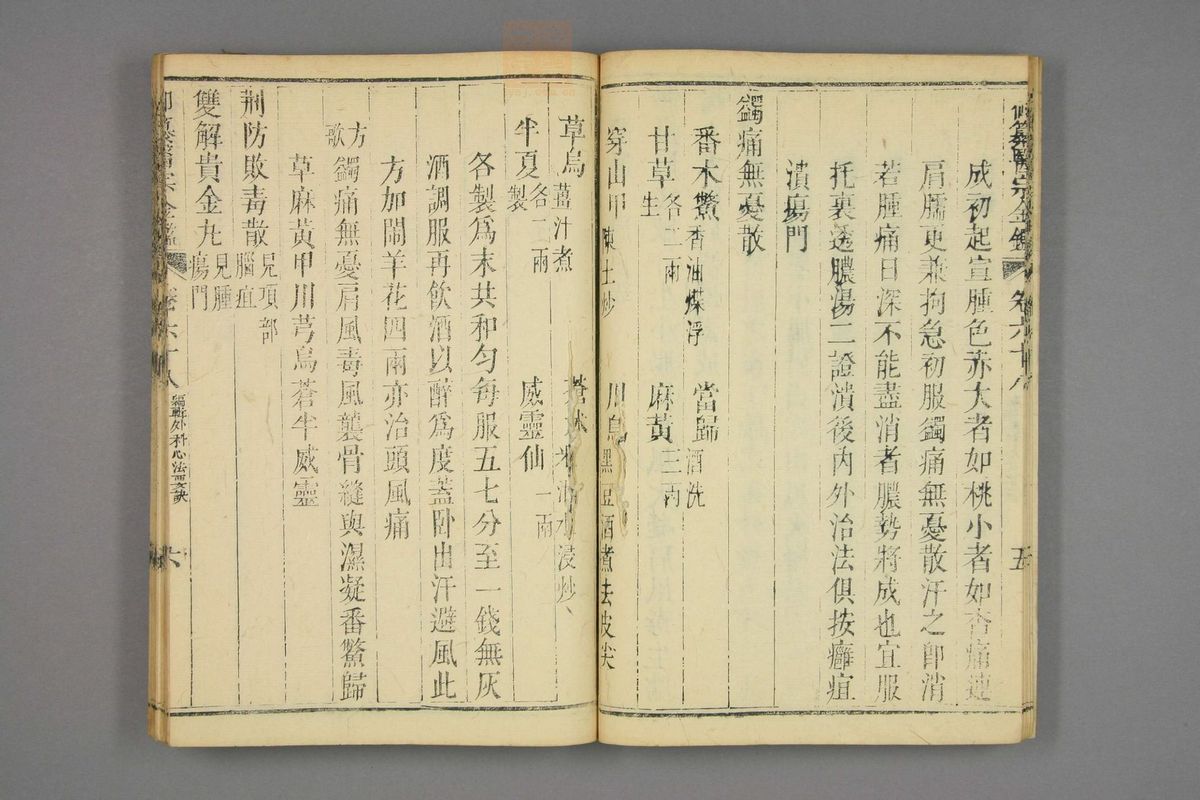 成初起宣腫色赤大者如桃小者如杏痛連
肩臑更兼拘急初服鐲痛無憂散汗之即消
若腫痛日深不能盡消者膿勢將成也宜服
托裏透膿湯二證潰後內外治法俱按癰疽
潰瘍門
鐲痛無憂散
番木鱉 香油煠浮 當歸 酒洗
甘草 生 各二兩 麻黃 三兩
穿山甲 陳土炒 川烏 黑豆酒煮去皮尖
草烏 薑汁煮 蒼朮 米泔水浸炒
半夏 製 各二兩 威靈仙 一兩
各製爲末共和勻每服五七分至一錢無灰
酒調服再飲酒以醉爲度蓋卧出汗避風此
方加鬧羊花四兩亦治頭風痛
方歌 鐲痛無憂肩風毒風襲骨縫與濕凝番鱉歸
草麻黃甲川芎烏蒼半威靈
荊防敗毒散 見項部腦疽
雙解貴金丸 見腫瘍門
卷六十八 五
卷六十八 編輯外科心法要訣 六